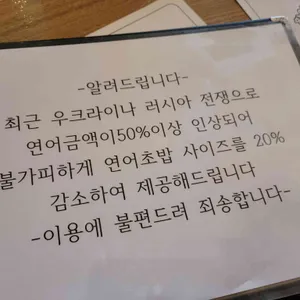 -알려드립니다-
최근 우크라이나 러시아 전쟁으로
연어금액이50%이상 인상되어
불가피하게 연어초밥 사이즈를 20%
감소하여 제공해드립니다
-이용에 불편드려 죄송합니다-